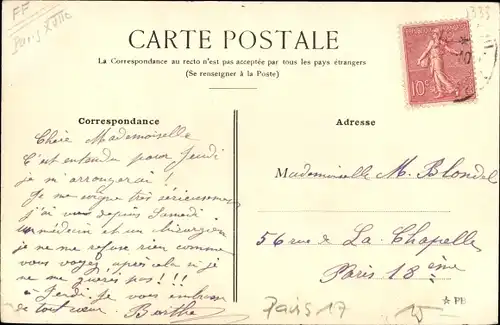 FF
Paris XVIIe
1333
CARTE POSTALE
La Correspondance au recto n'est pas acceptée par tous les pays étrangers
(Se renseigner à la Poste)
10c
Correspondance
Adresse
Chère Mademoiselle
C'est entendu pour Jeudi
je m'arrangerai !
Je me soigne très sérieusement
j'ai vu depuis Samedi
un médecin et un chirurgien
je ne me refuse rien comme
vous voyez, après cela si je
ne me guéris pas !!!
à Jeudi, je vous embrasse
de tout cœur. Berthe
Mademoiselle M. Blondel
56 rue de La Chapelle
Paris 18ème
Paris 17